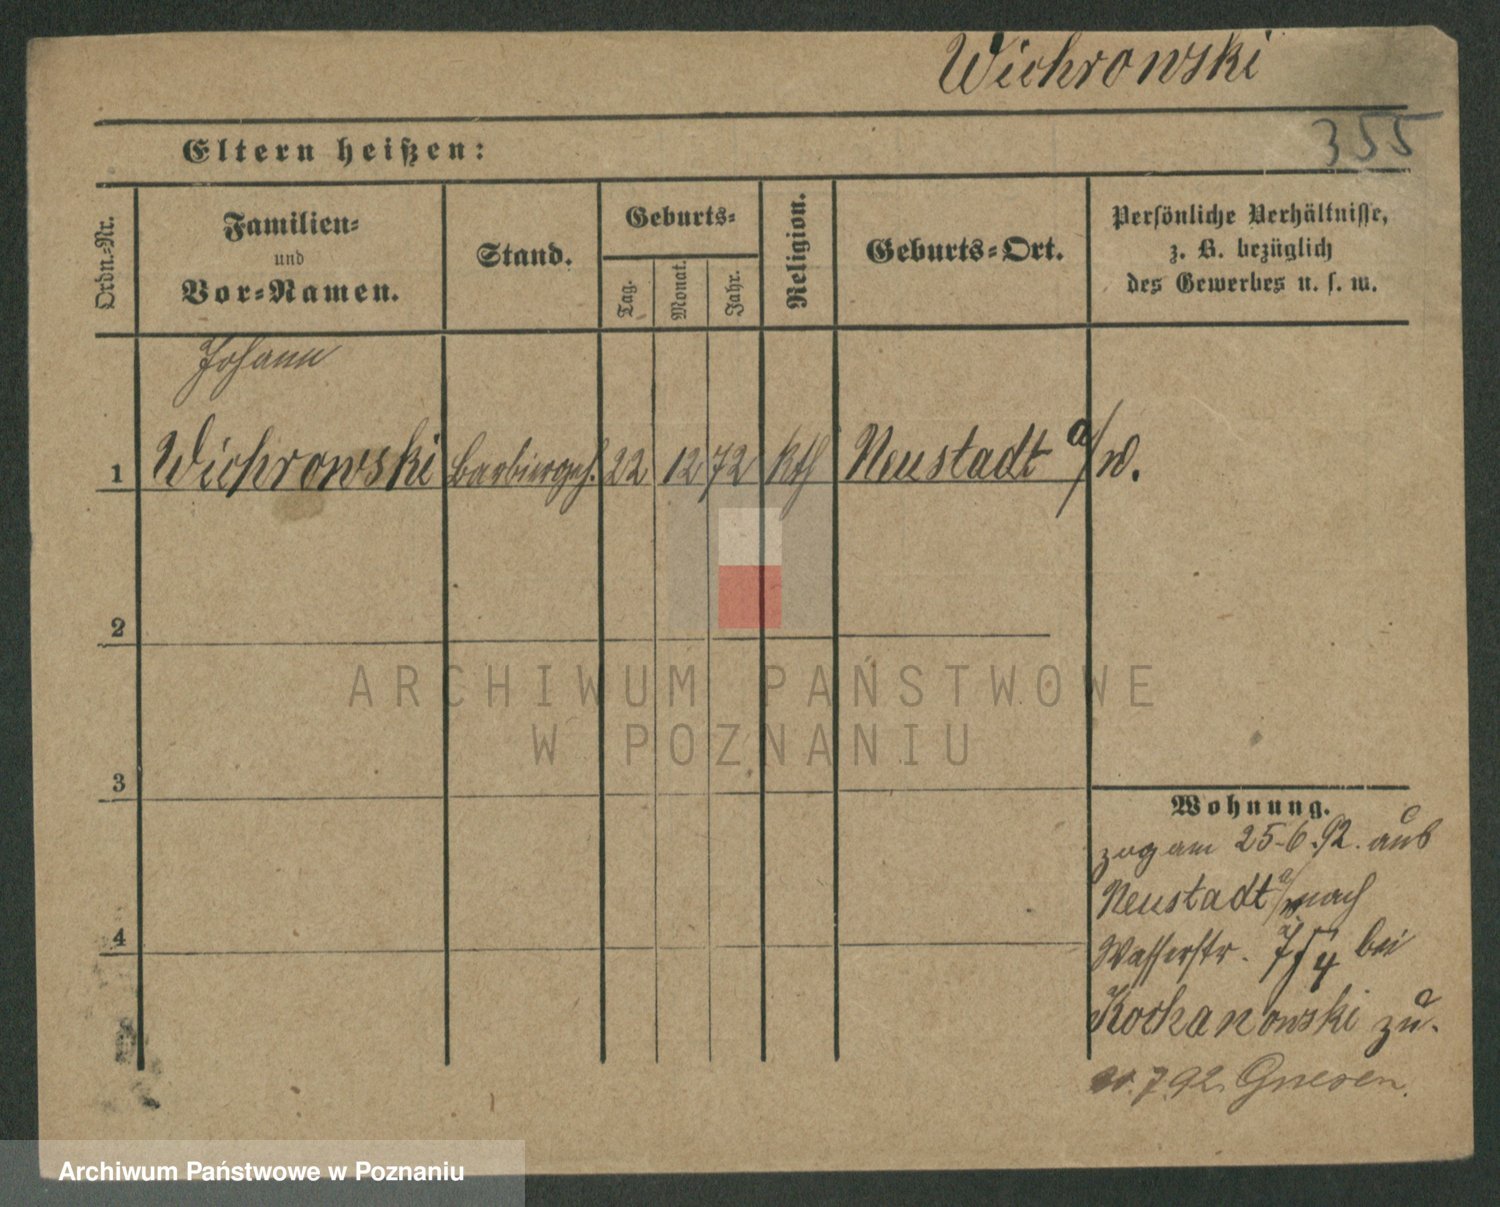 Wichrowski
355
Eltern heißen:
Ordn.-Nr.
Familien-
und
Vor-Namen.
Stand.
Geburts-
Tag.
Monat.
Jahr.
Religion.
Geburts-Ort.
Persönliche Verhältnisse,
z. B. bezüglich
des Gewerbes u. s. w.
Johann
1 Wichrowski Barbiergeh. 22 12 72 kth Neustadt a/W.
2
ARCHIWUM PAŃSTWOWE
W POZNANIU
3
Wohnung.
zog am 25-6.92. aus
Neustadt a/W nach
Wasserstr. bei
Kochanowski zu.
7.92. Gnesen.
4
Archiwum Państwowe w Poznaniu